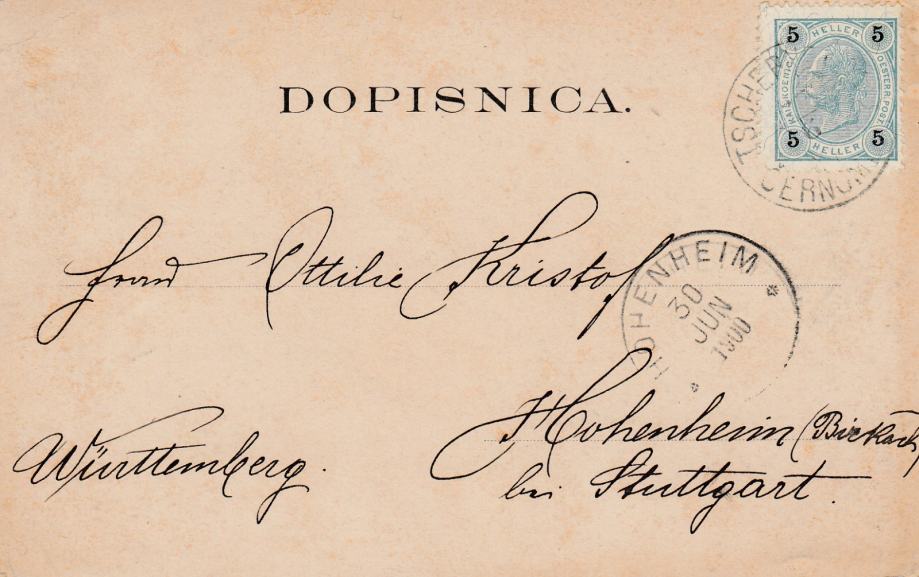 DOPISNICA.
5 HELLER 5
KAIS. KOENIGL. OESTERR. POST.
5 HELLER 5
TSCHER
ČERNOM
Frau Ottilie Kristof
HOHENHEIM
30
JUN
1900
Hohenheim (Birkach)
Württemberg.
bei Stuttgart.